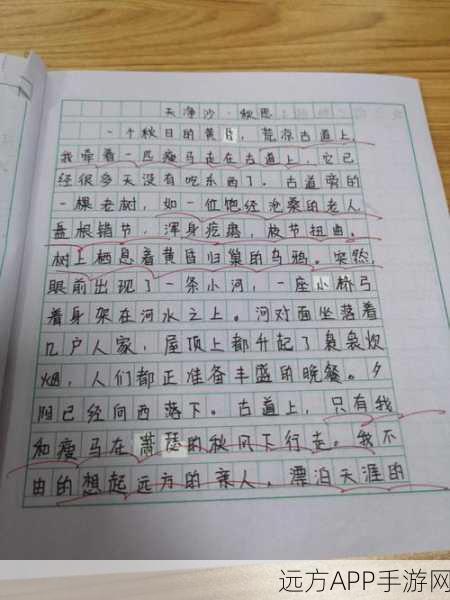 天净沙·秋思
一个秋日的黄昏，荒凉古道上
我牵着一匹瘦马走在古道上，它已
经很多天没有吃东西了。古道旁的
一棵老树，如一位饱经沧桑的老人
盘根错节，浑身疙瘩，枝节扭曲。
树上栖息着黄昏归巢的乌鸦。突然，
眼前出现了一条小河，一座小桥弓
着身架在河水之上。河对面坐落着
几户人家，屋顶上都升起了袅袅炊
烟，人们都正准备丰盛的晚餐。夕
阳已经向西落下。古道上，只有我
和瘦马在萧瑟的秋风下行走。我不
由的想起远方的亲人，漂泊天涯的
远方APP手游网